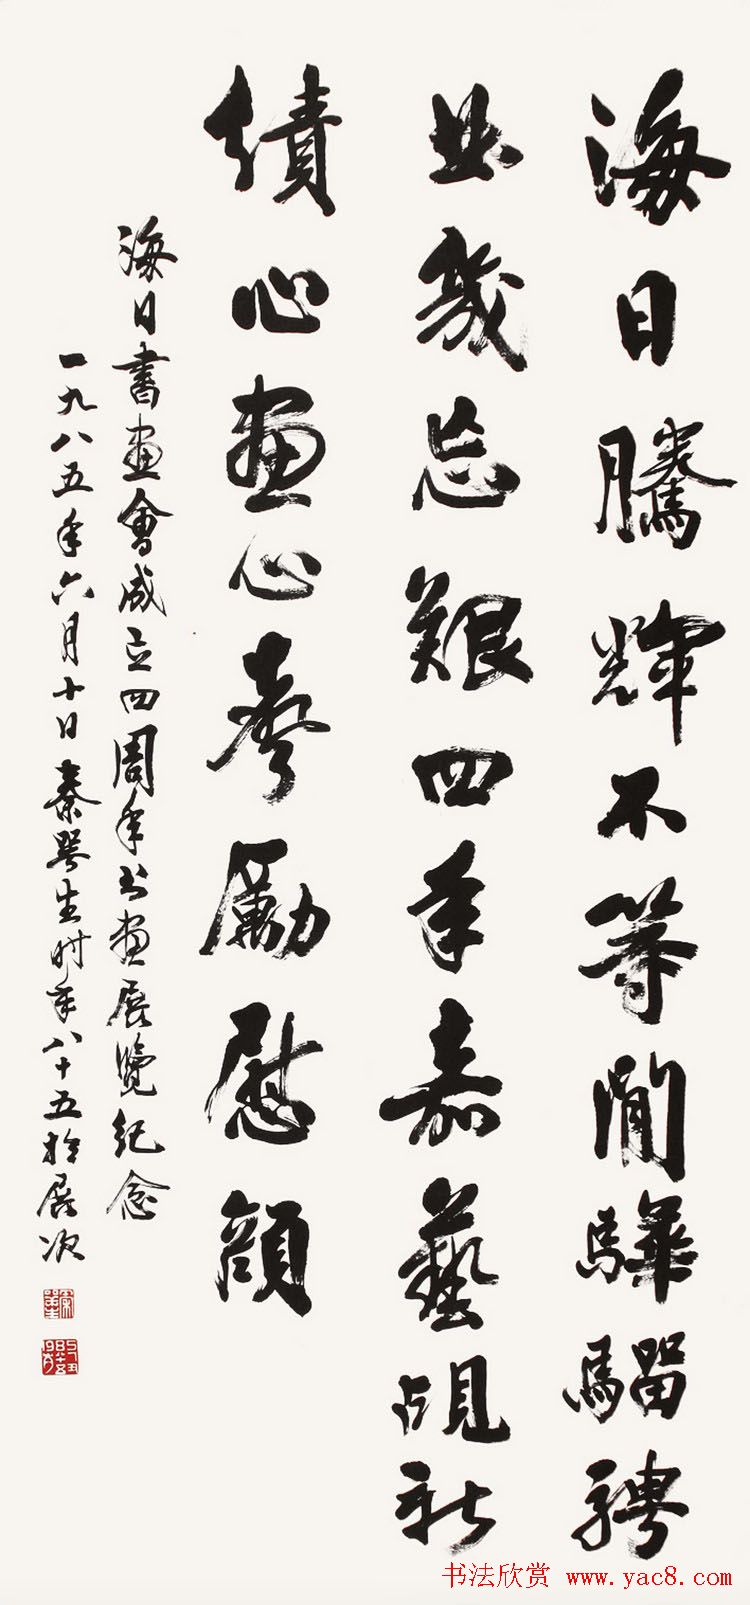 海日騰輝不等閒驊騮騁
幾忘艱四年嘉藝覘新
績心畫心聲勵慰顏
海日書畫會成立四周年书畫展覽紀念
一九八五年六月十日秦咢生时年八十五於展次
书法欣赏 www.yac8.com